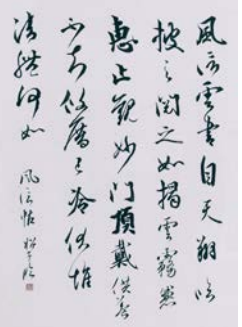 風信雲書自天翔臨
披之閲之如揭雲霧兼
恵止觀妙門頂戴供養
不知攸厝已冷伏惟
法體何如
風信帖